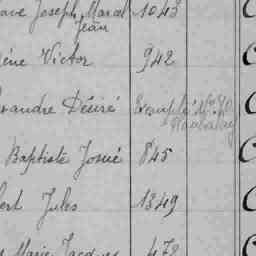 ave Joseph Marcel 1043
Jean
ène Victor 942
exandre Désiré Exempté
Baptiste Josué 845
bert Jules 1349
Marie Jacques 478